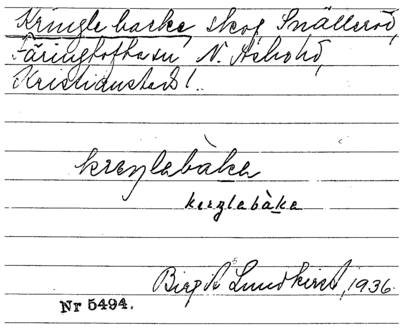 Kringle backe skog, Snälleröd,
Färingtofta sn N. Åsbohd,
Kristianstads l.
kreŋlabàka
kreŋlabàka
Birgit Lundkvist, 1936.
Nr 5494.